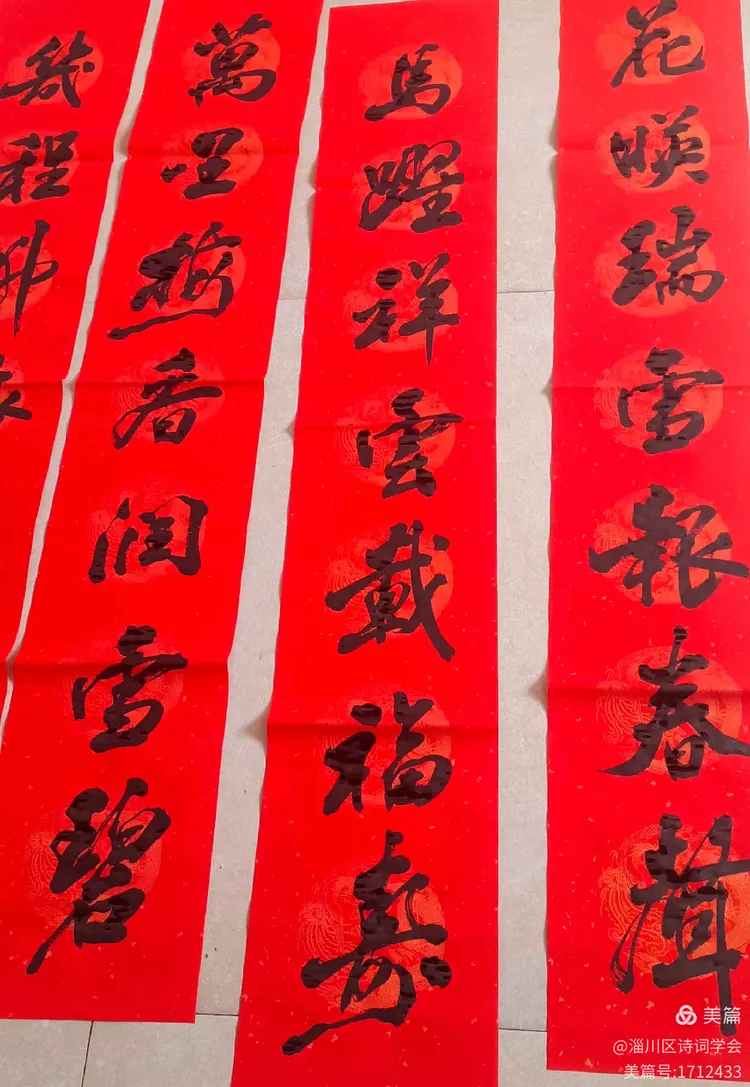 花暎瑞雪報春聲
馬躍祥雲載福壽
萬里梅香润雪碧
幾程
美篇
@淄川区诗词学会
美篇号:1712433